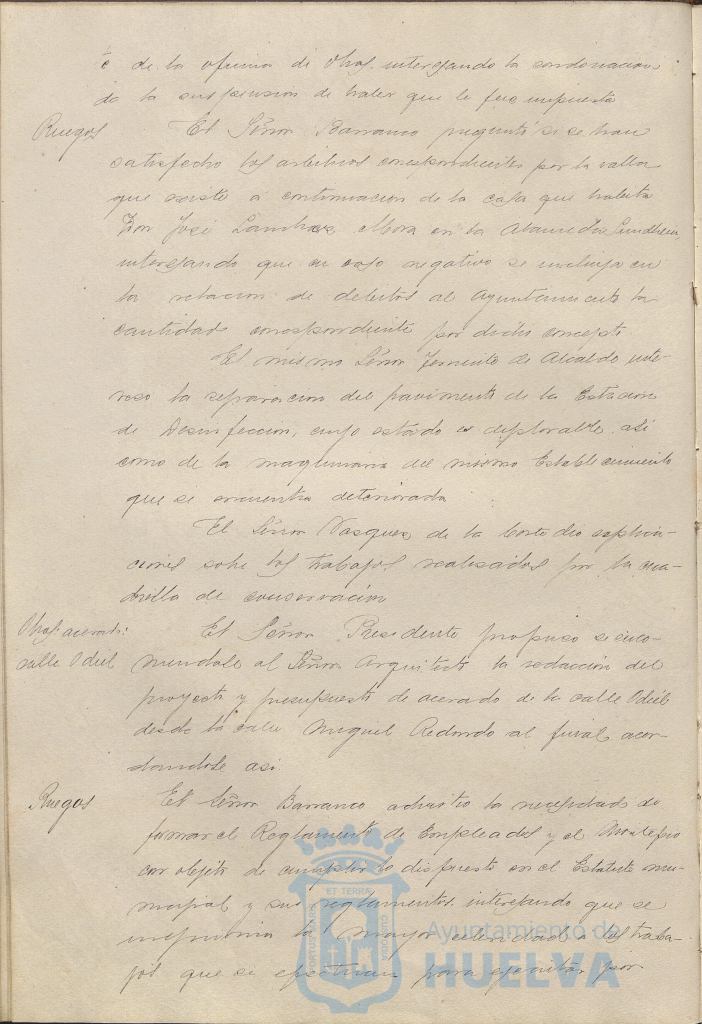 é de la oficina de Obras interesando la condonacion
de la suspension de haber que le fue impuesta
Ruegos
El Señor Barranco preguntó si se han
satisfecho los arbitrios correspondientes por la valla
que existe a continuacion de la casa que habita
Don José Mora en la Alameda Sundheim,
interesando que en caso negativo se incluya en
la relacion de debitos al Ayuntamiento la
cantidad correspondiente por dicho concepto
El mismo Señor Teniente de Alcalde inte-
resó la reparacion del pavimento de la Estacion
de Desinfeccion, cuyo estado es deplorable, asi
como de la maquinaria del mismo Establecimiento
que se encuentra deteriorada
El Señor Vasquez de la Corte dio explica-
ciones sobre los trabajos realizados por la cua-
drilla de conservacion
Obras acerado:
calle Odiel
El Señor Presidente propuso se enco-
mendase al Señor Arquitecto la redacción del
proyecto y presupuesto de acerado de la calle Odiel
desde la calle Miguel Redondo al final, acor-
dandose asi
Ruegos
El Señor Barranco advirtio la necesidad de
formar el Reglamento de Empleados y el Montepio
con objeto de cumplir lo dispuesto en el Estatuto mu-
nicipal y sus reglamentos, interesando que se
imprima la mayor celeridad a los traba-
jos que se efectuan para ejecutar por
PORTUS MARIS
ET TERRAE
CUSTODIA
Ayuntamiento de
HUELVA